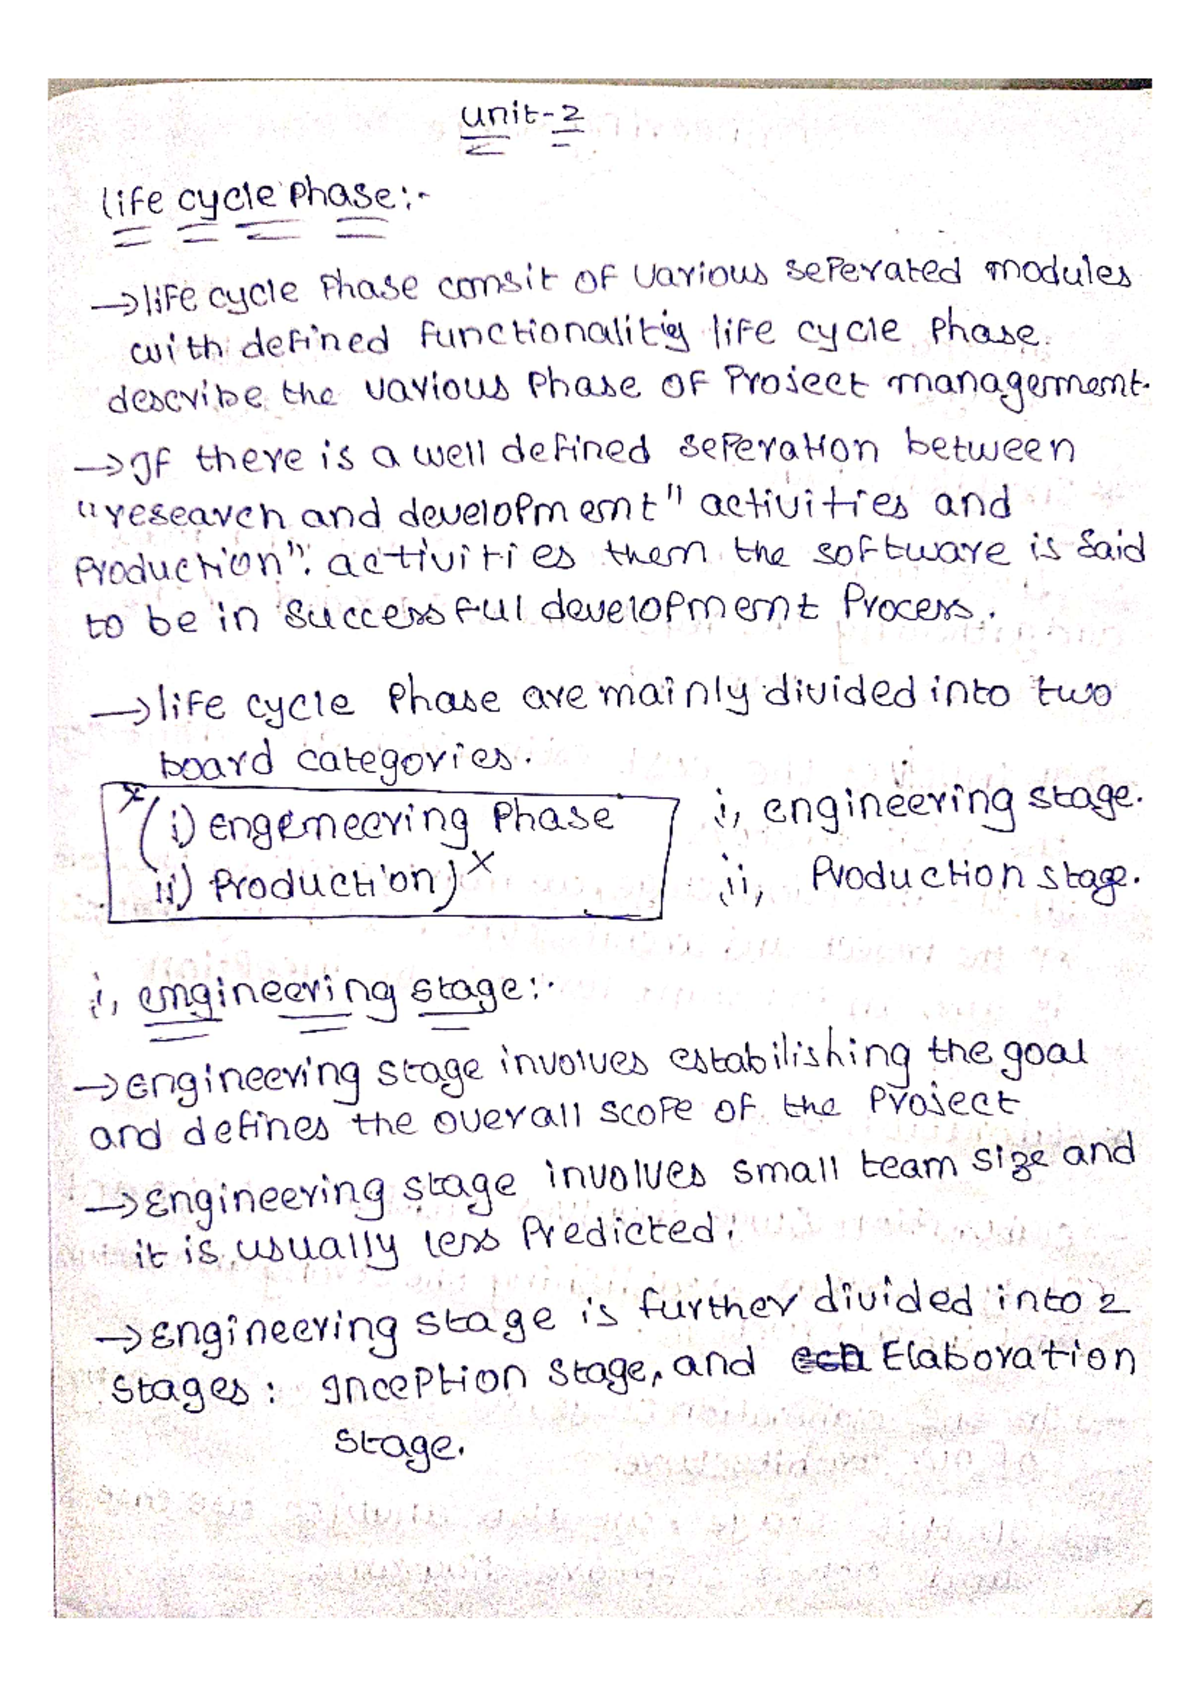 unit-2
life cycle phase:-
→life cycle Phase consit of various seperated modules
with defined functionalities life cycle phase.
describe the various phase of Project management.
→If there is a well defined seperation between
"research and development" activities and
Production". activities them the software is said
to be in successful development Process.
→life cycle Phase are mainly divided into two
board categories.
(i) engemeering Phase
ii) Production)
i, engineering stage.
ii, Production stage.
i, engineering stage:-
→engineering stage involves estabilishing the goal
and defines the overall scope of the Project
→Engineering stage involves small team size and
it is usually less Predicted.
→Engineering stage is further divided into 2
stages: Inception stage, and Elaboration
stage.